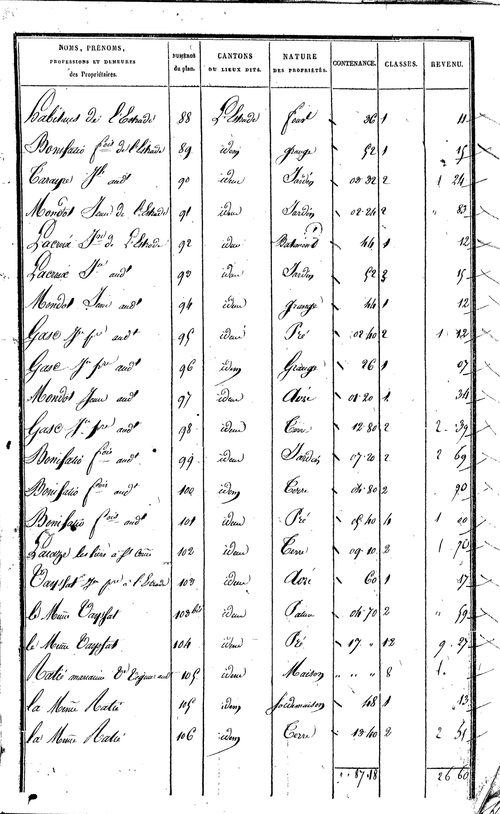 NOMS, PRÉNOMS, PROFESSIONS ET DEMEURES des Propriétaires. NUMÉROS du plan. CANTONS OU LIEUX DITS. NATURE DES PROPRIÉTÉS. CONTENANCE. CLASSES. REVENU.
habitans de L'Estrade 88 L'Estrade Four 36 1 11
Bonifatio fçois de l'Estrade 89 idem grange 52 1 15
jne audt 90 idem Jardin 03 32 2 1 24
Mondot Jean de l'Estrade 91 idem Jardin 02 24 2 " 83
Lacroix de L'Estrade 92 idem Batiment 44 1 12
Lacroix audt 93 idem Jardin 52 3 15
Mondot Jean audt 94 idem grange 44 1 12
Gasc audt 95 idem Pré 02 40 2 1 12
Gasc audt 96 idem Grange 26 1 07
Mondot Jean audt 97 idem 01 20 1 34
Gasc audt 98 idem Terre 12 80 2 2 39
Bonifatio fçois audt 99 idem Jardin 07 20 2 2 69
Bonifatio fçois audt 100 idem Terre 04 80 2 90
Bonifatio fçois audt 101 idem Pré 05 40 4 1 00
102 idem Terre 09 10 2 1 70
Vayssat à l'Estrade 103 idem 60 1 17
le Même Vayssat 103 bis idem Pature 04 70 2 " 59
le Même Vayssat 104 idem Pré 17 " 12 9 27
Ratié 105 idem Maison " " " 8 1
la Même Ratié 105 idem Sol de maison 48 1 13
la Même Ratié 106 idem Terre 13 40 2 2 51
" 87 18 26 60